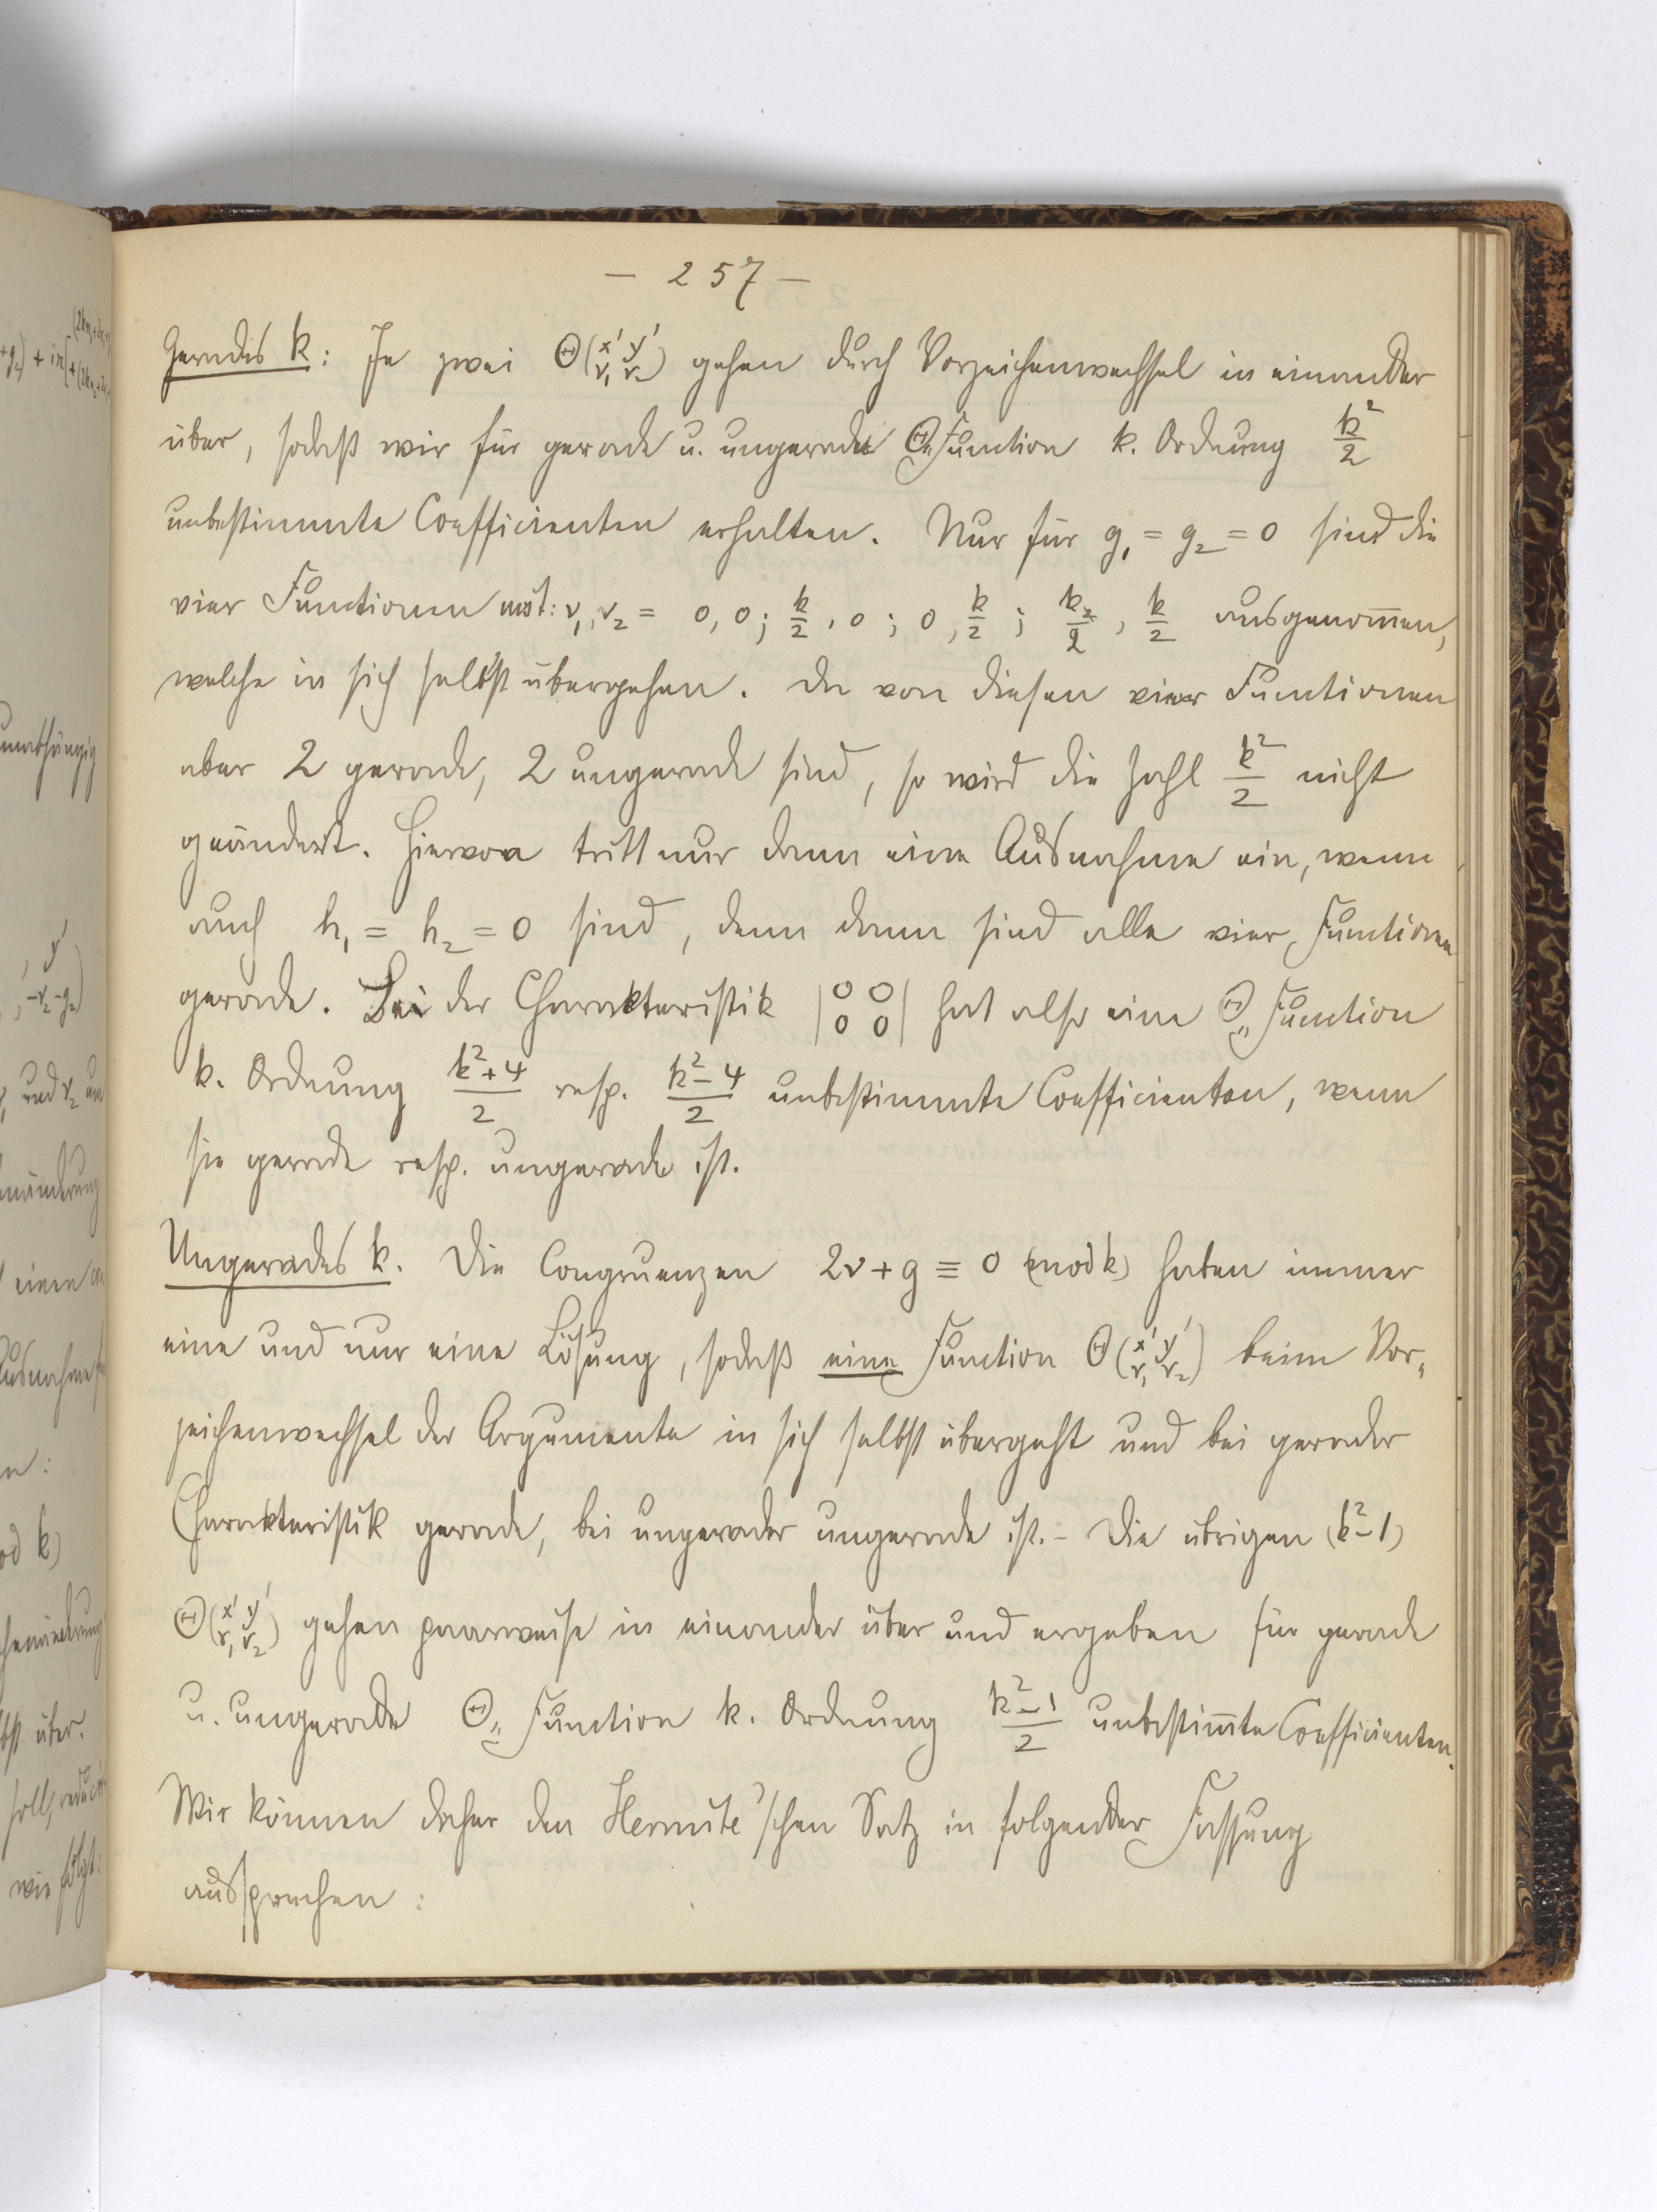 — 257 —
Gerades k: Je zwei Θ(x' y' / ν₁ ν₂) gehen durch Vorzeichenwechsel in einander
über, sodaß wir für gerade u. ungerade Θ„Function k. Ordnung k²/2
unbestimmte Coefficienten erhalten. Nur für g₁ = g₂ = 0 sind die
vier Functionen mit: ν₁, ν₂ = 0, 0; k/2, 0; 0, k/2; k/2, k/2 ausgenom̅en,
welche in sich selbst übergehen. Da von diesen vier Functionen
aber 2 gerade, 2 ungerade sind, so wird die Zahl k²/2 nicht
geändert. Hiervon tritt nur dann eine Ausnahme ein, wenn
auch h₁ = h₂ = 0 sind, denn dann sind alle vier Functionen
gerade. Bei der Charakteristik |0 0 / 0 0| hat also eine Θ„Function
k. Ordnung (k²+4)/2 resp. (k²-4)/2 unbestimmte Coefficienten, wenn
sie gerade resp. ungerade ist.
Ungerades k. Die Congruenzen 2ν + g ≡ 0 (mod k) haben immer
eine und nur eine Lösung, sodaß eine Function Θ(x' y' / ν₁ ν₂) beim Vor„
zeichenwechsel der Argumente in sich selbst übergeht und bei gerader
Charakteristik gerade, bei ungerader ungerade ist. – Die übrigen (k²-1)
Θ(x' y' / ν₁ ν₂) gehen paarweise in einander über und ergeben für gerade
u. ungerade Θ„Function k. Ordnung (k²-1)/2 unbestim̅te Coefficienten.
Wir können daher den Hermite'schen Satz in folgender Fassung
aussprechen: